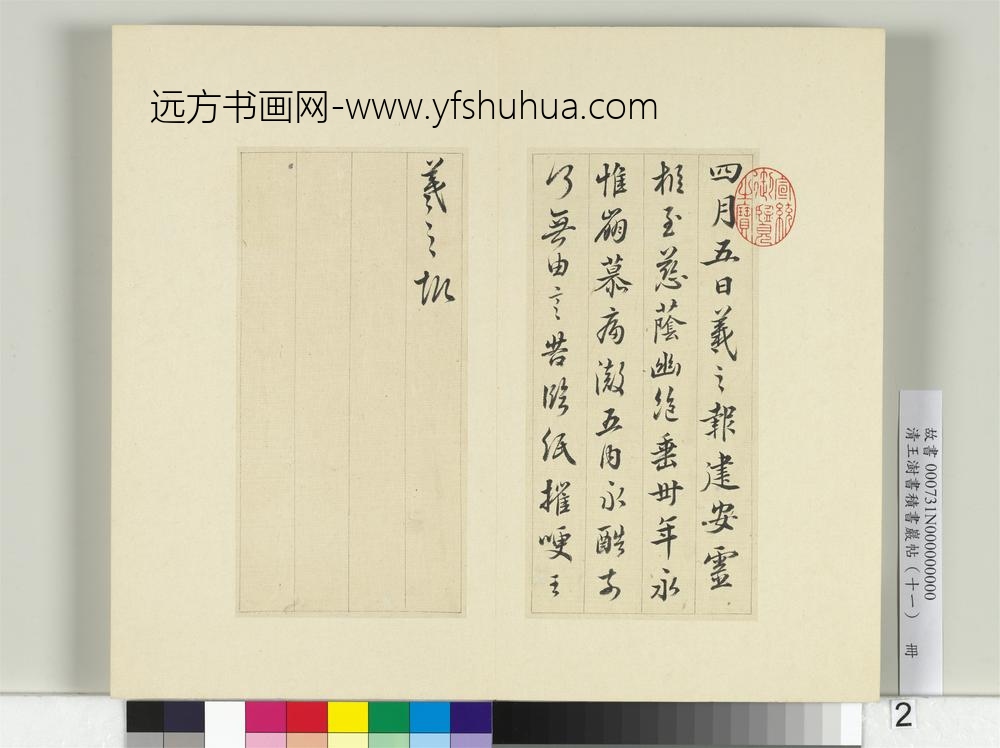 远方书画网-www.yfshuhua.com
四月五日羲之報建安靈
柩至慈蔭幽絕垂卅年永
惟崩慕痛徹五內永酷奈
何無由言告臨紙摧哽王
羲之報
宣統御覽之寶
故書 000731N000000000
清王澍書積書巖帖(十一) 冊
2